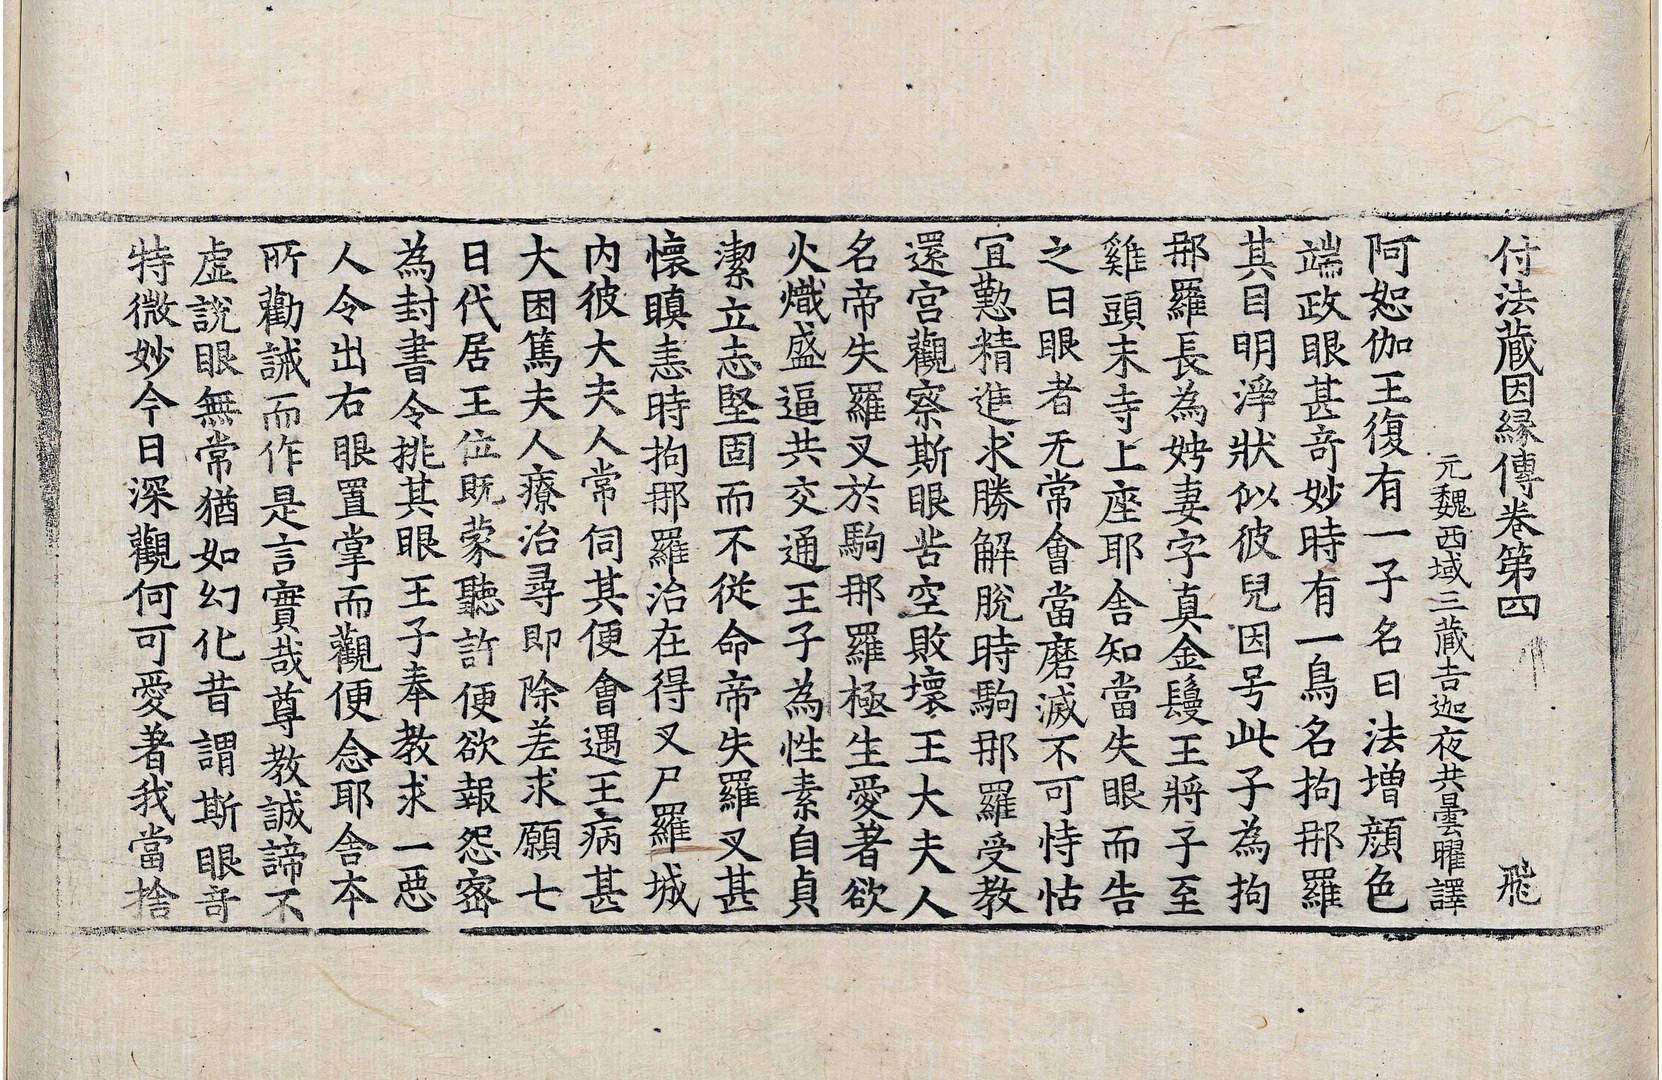 付法藏因縁傳卷第四 飛
元魏西域三藏吉迦夜共曇曜譯
阿恕伽王復有一子名曰法增顔色
端政眼甚奇妙時有一鳥名拘那羅
其目明淨狀似彼兒因号此子為拘
那羅長為娉妻字真金鬘王將子至
雞頭末寺上座耶舍知當失眼而告
之曰眼者无常會當磨滅不可恃怙
宜懃精進求勝解脫時駒那羅受教
還宮觀察斯眼苦空敗壞王大夫人
名帝失羅叉於駒那羅極生愛著欲
火熾盛逼共交通王子為性素自貞
潔立志堅固而不從命帝失羅叉甚
懷瞋恚時拘那羅治在得叉尸羅城
内彼大夫人常伺其便會遇王病甚
大困篤夫人療治尋即除差求願七
日代居王位既蒙聽許便欲報怨密
為封書令挑其眼王子奉教教求一惡
人令出右眼置掌而觀便念耶舍本
所勸誡而作是言實哉尊教誠諦不
虛說眼無常猶如幻化昔謂斯眼竒
特微妙今日深觀何可愛著我當捨